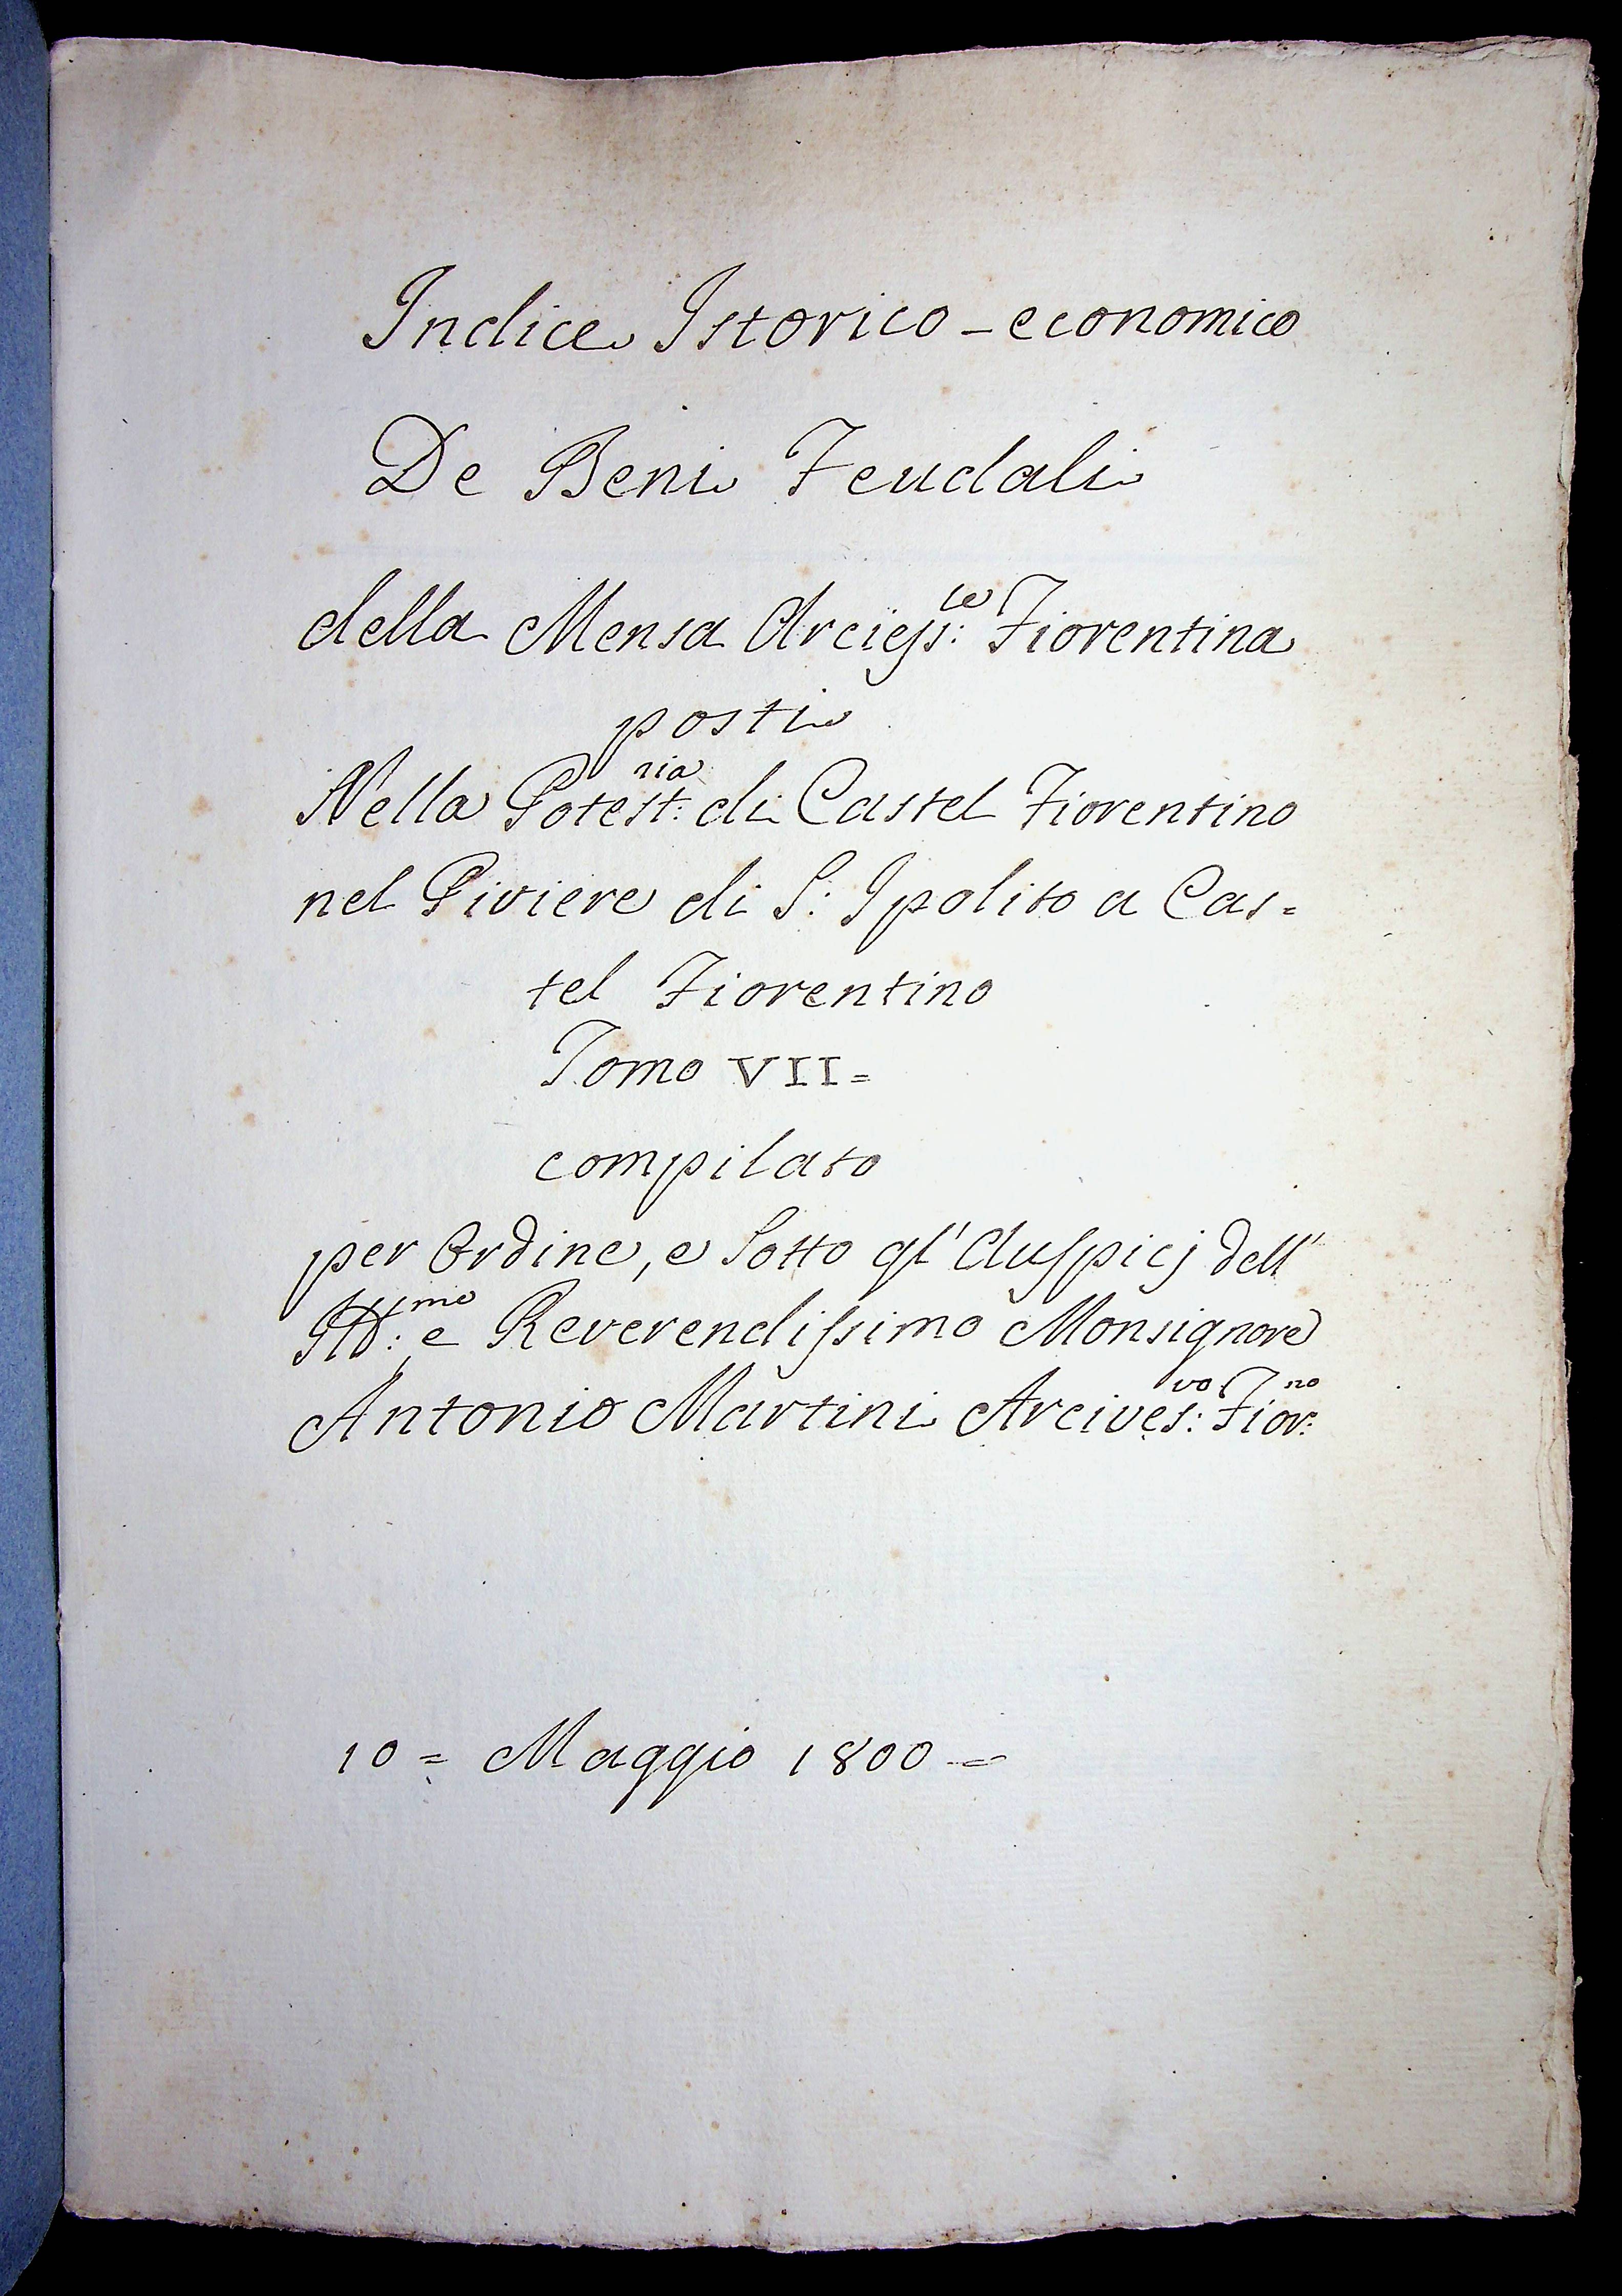 Indice Istorico - economico
De Beni Feudali
della Mensa Arcieps:le Fiorentina
posti
Nella Potest:ria di Castel Fiorentino
nel Piviere di S: Ipolito a Cas=
tel Fiorentino
Tomo VII=
compilato
per Ordine, e Sotto gl' Auspicj dell'
Ill:mo e Reverendissimo Monsignore
Antonio Martini Arcives:vo Fior:no
10 = Maggio 1800 =